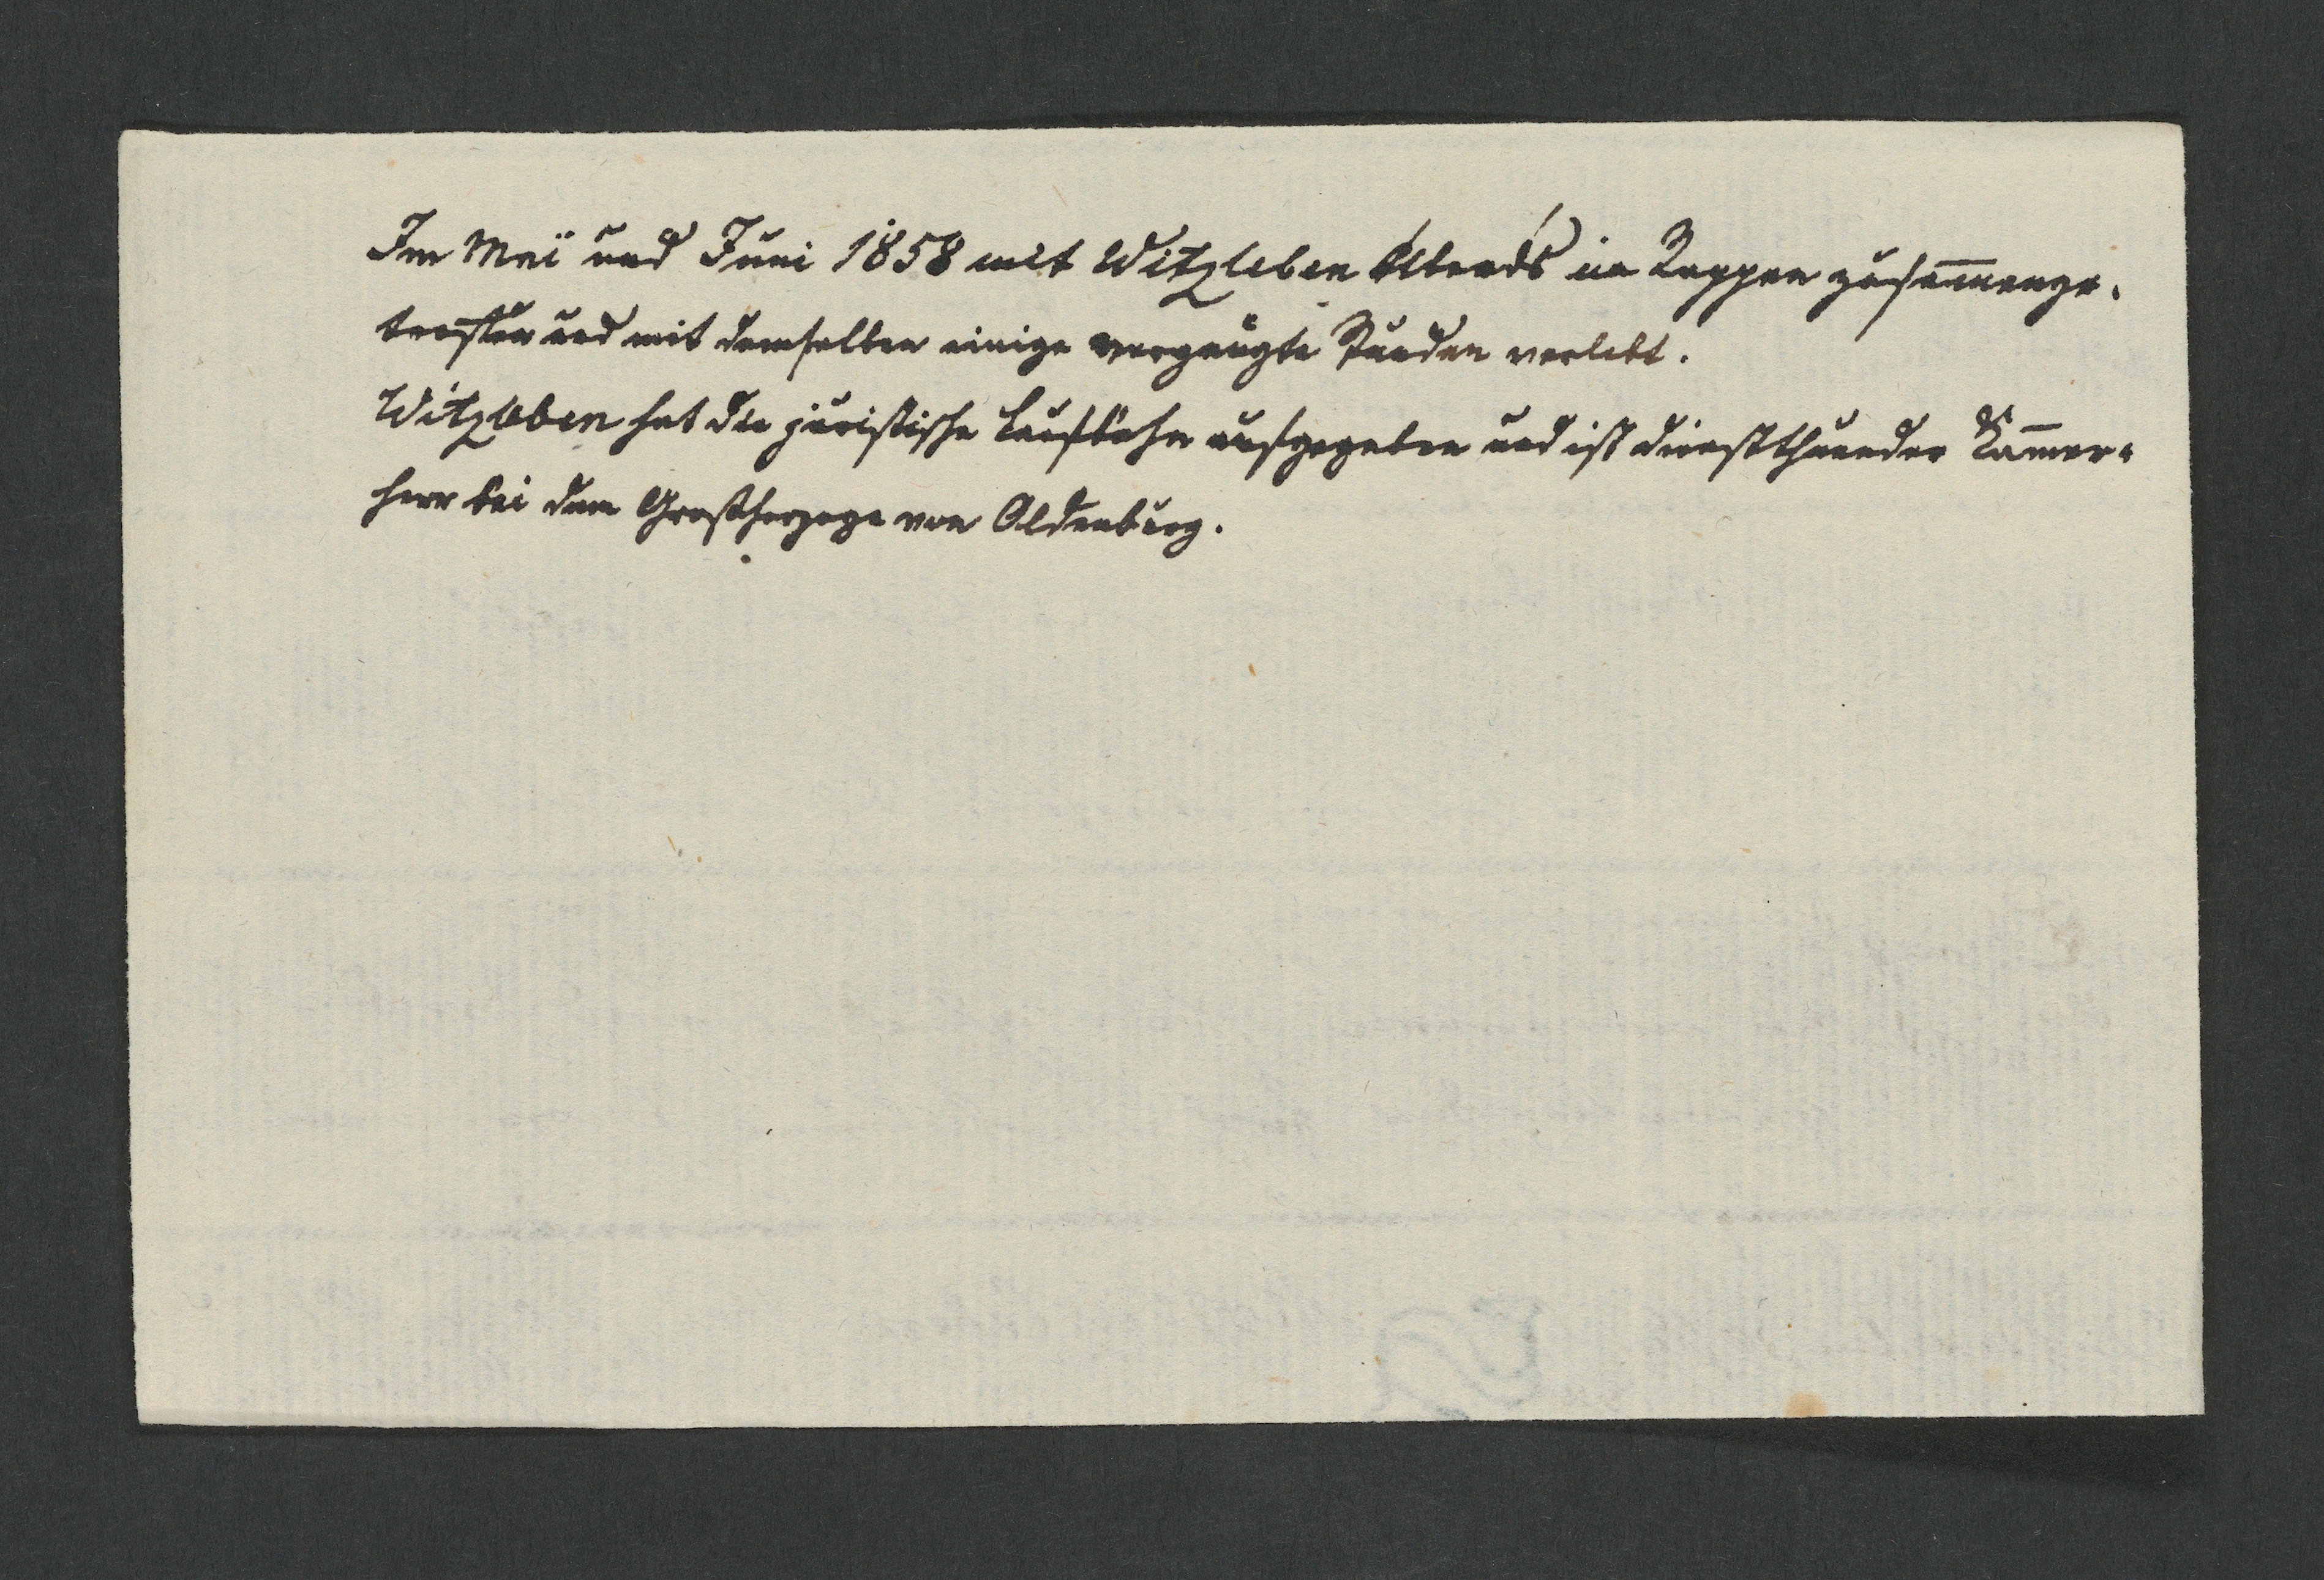 Im Mai und Juni 1858 mit Witzleben Abends in Rappen zusammenge-
troffen und mit demselben einige vergnügte Stunden verlebt.
Witzleben hat die juristische Laufbahn aufgegeben und ist dienstthuender Kammer-
herr bei dem Großherzoge von Oldenburg.